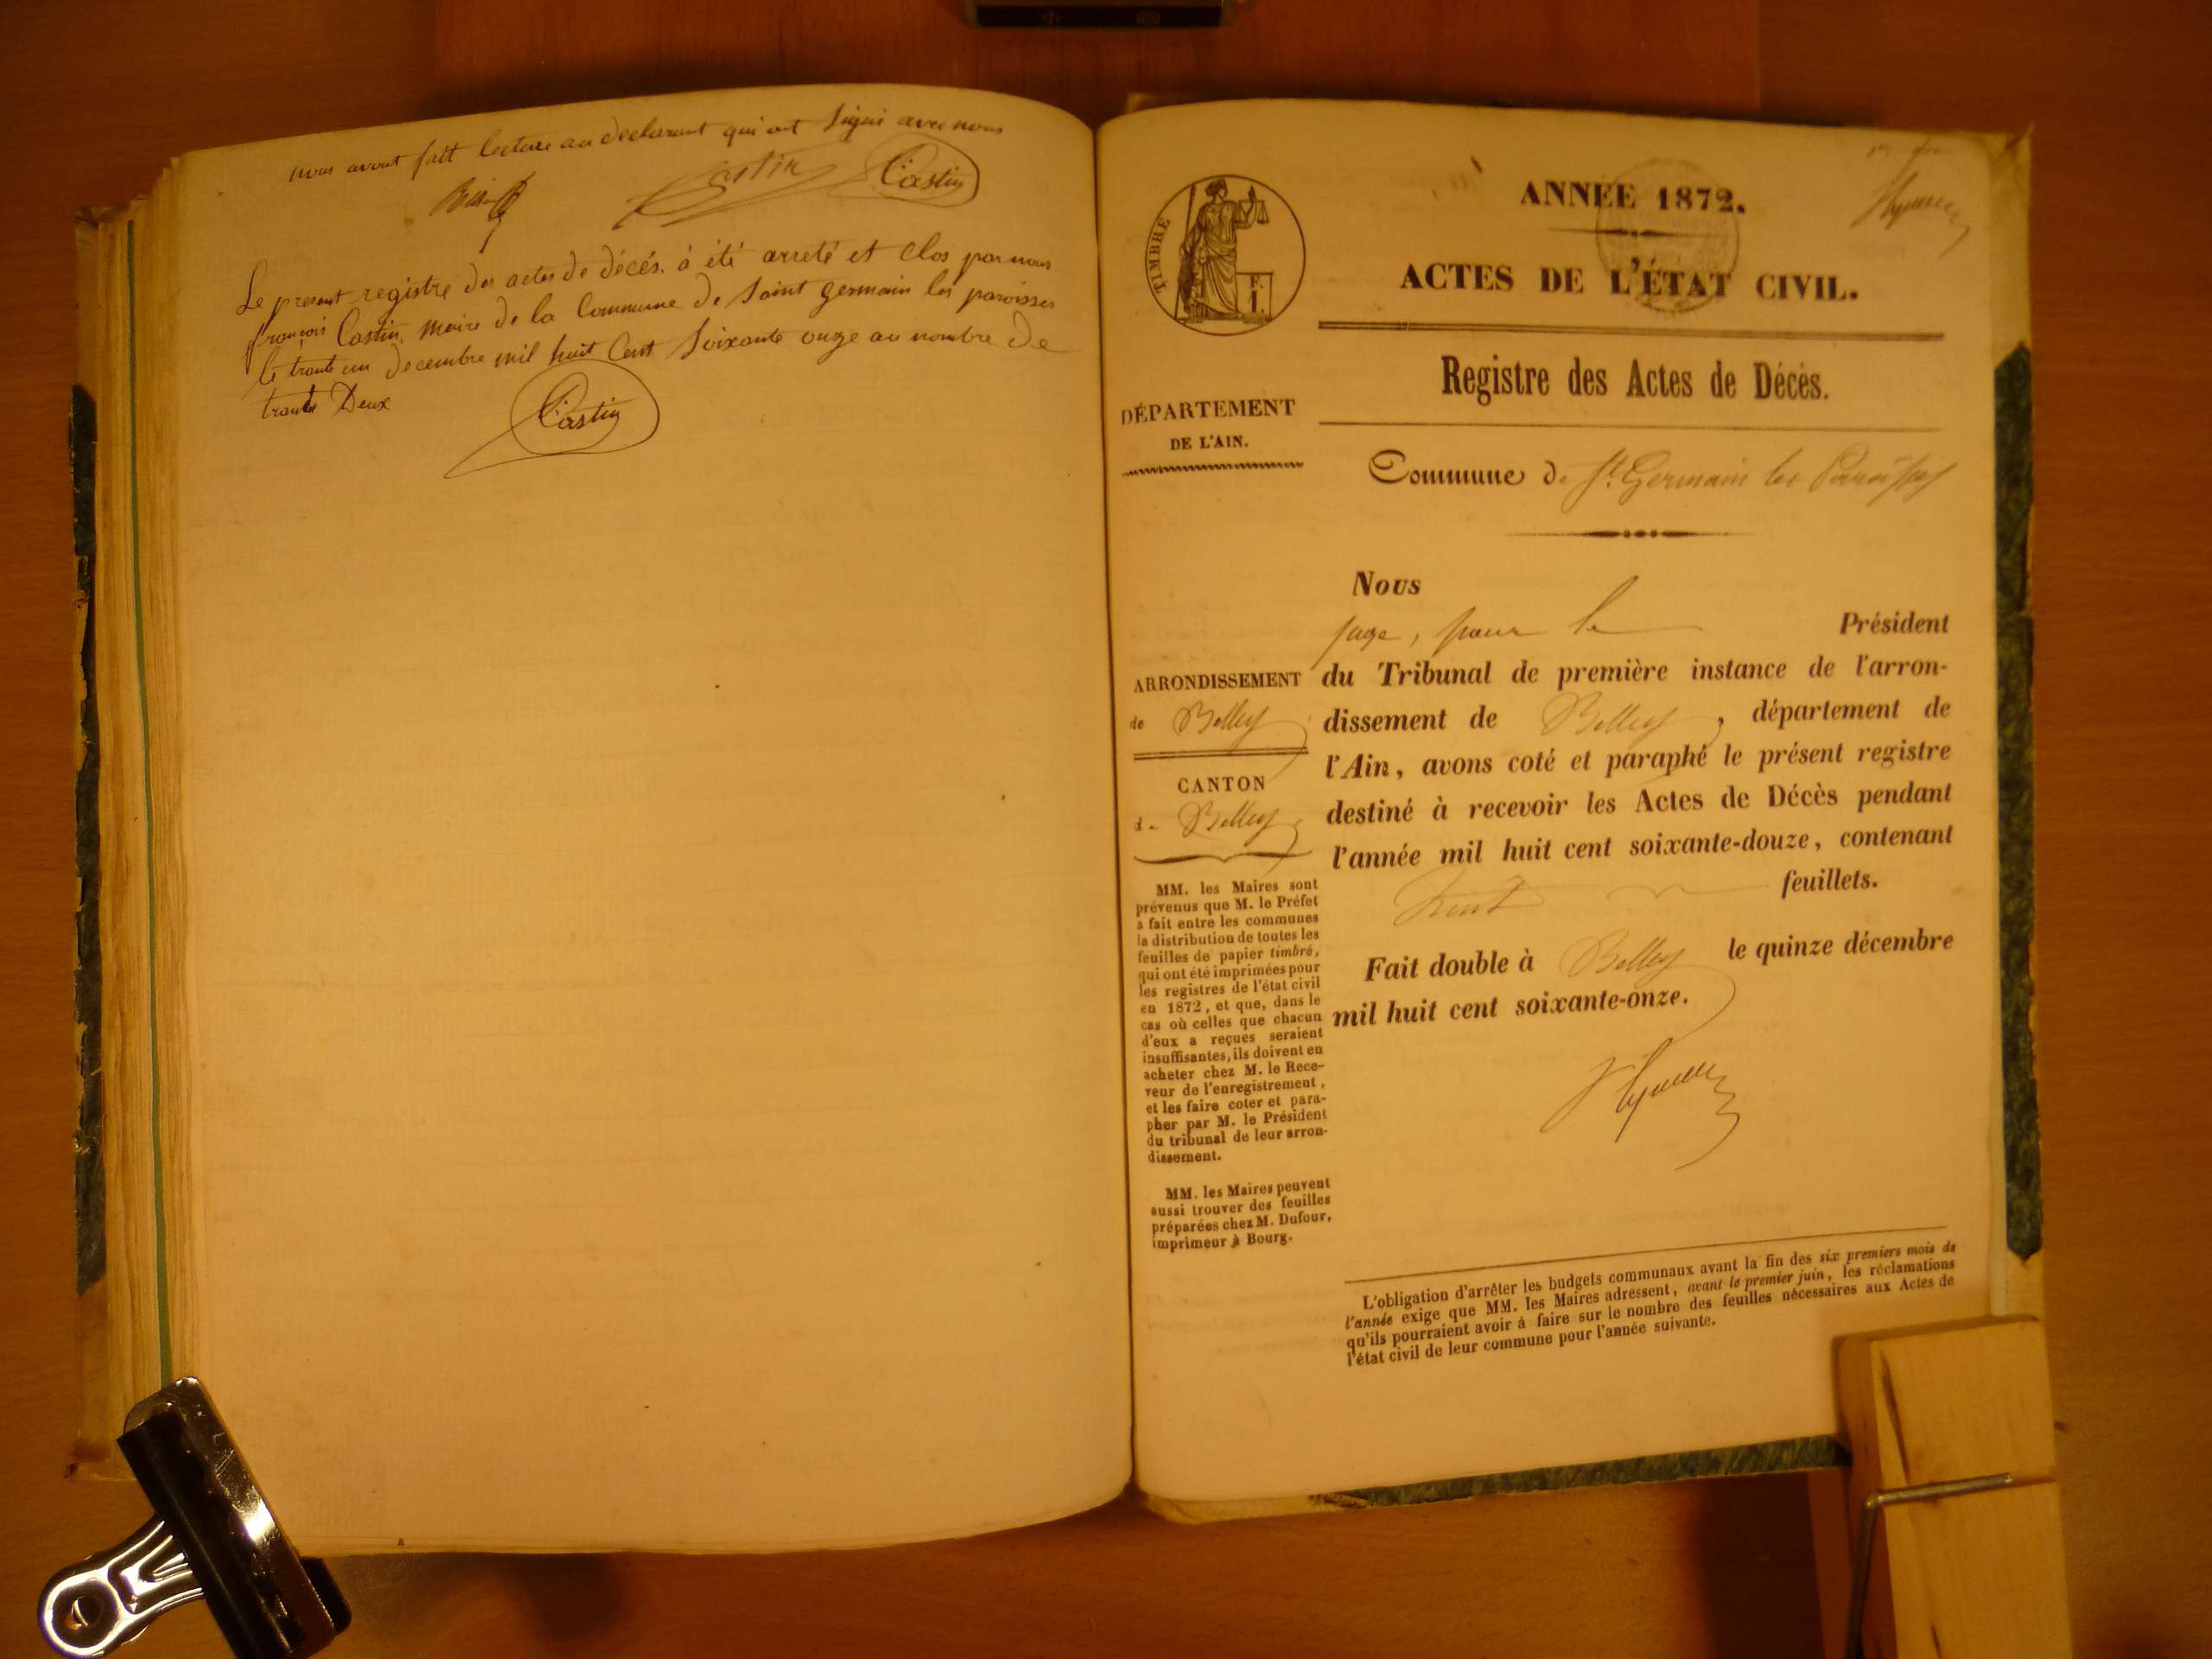 nous avont fait lecture au declarant qui ont signé avec nous
Castin Castin
Le present registre des actes de décés. à été arreté et clos par nous
françois Castin, maire de la Commune de saint germain les paroisses
le trante un decembre mil huit Cent soixante onze au nombre de
trante Deux
Castin
TIMBRE
ANNÉE 1872.
ACTES DE L'ÉTAT CIVIL.
Registre des Actes de Décès.
DÉPARTEMENT
DE L'AIN.
Commune de St. Germain les Paroisses
Nous
juge, pour le Président
du Tribunal de première instance de l'arron-
dissement de Belley, département de
l'Ain, avons coté et paraphé le présent registre
destiné à recevoir les Actes de Décès pendant
l'année mil huit cent soixante-douze, contenant
feuillets.
Fait double à Belley le quinze décembre
mil huit cent soixante-onze.
ARRONDISSEMENT
de Belley
CANTON
de Belley
MM. les Maires sont
prévenus que M. le Préfet
a fait entre les communes
la distribution de toutes les
feuilles de papier timbré,
qui ont été imprimées pour
les registres de l'état civil
en 1872, et que, dans le
cas où celles que chacun
d'eux a reçues seraient
insuffisantes, ils doivent en
acheter chez M. le Rece-
veur de l'enregistrement,
et les faire coter et para-
pher par M. le Président
du tribunal de leur arron-
dissement.
MM. les Maires peuvent
aussi trouver des feuilles
préparées chez M. Dufour,
imprimeur à Bourg.
L'obligation d'arrêter les budgets communaux avant la fin des six premiers mois de
l'année exige que MM. les Maires adressent, avant le premier juin, les réclamations
qu'ils pourraient avoir à faire sur le nombre des feuilles nécessaires aux Actes de
l'état civil de leur commune pour l'année suivante.